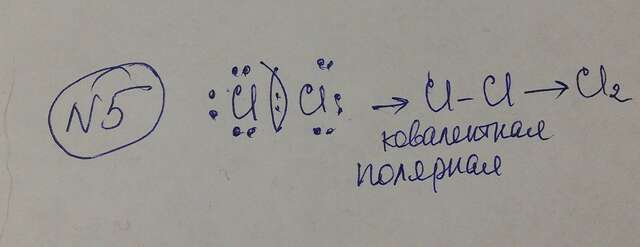 N5 Cl : Cl → Cl – Cl → Cl₂
ковалентная
полярная